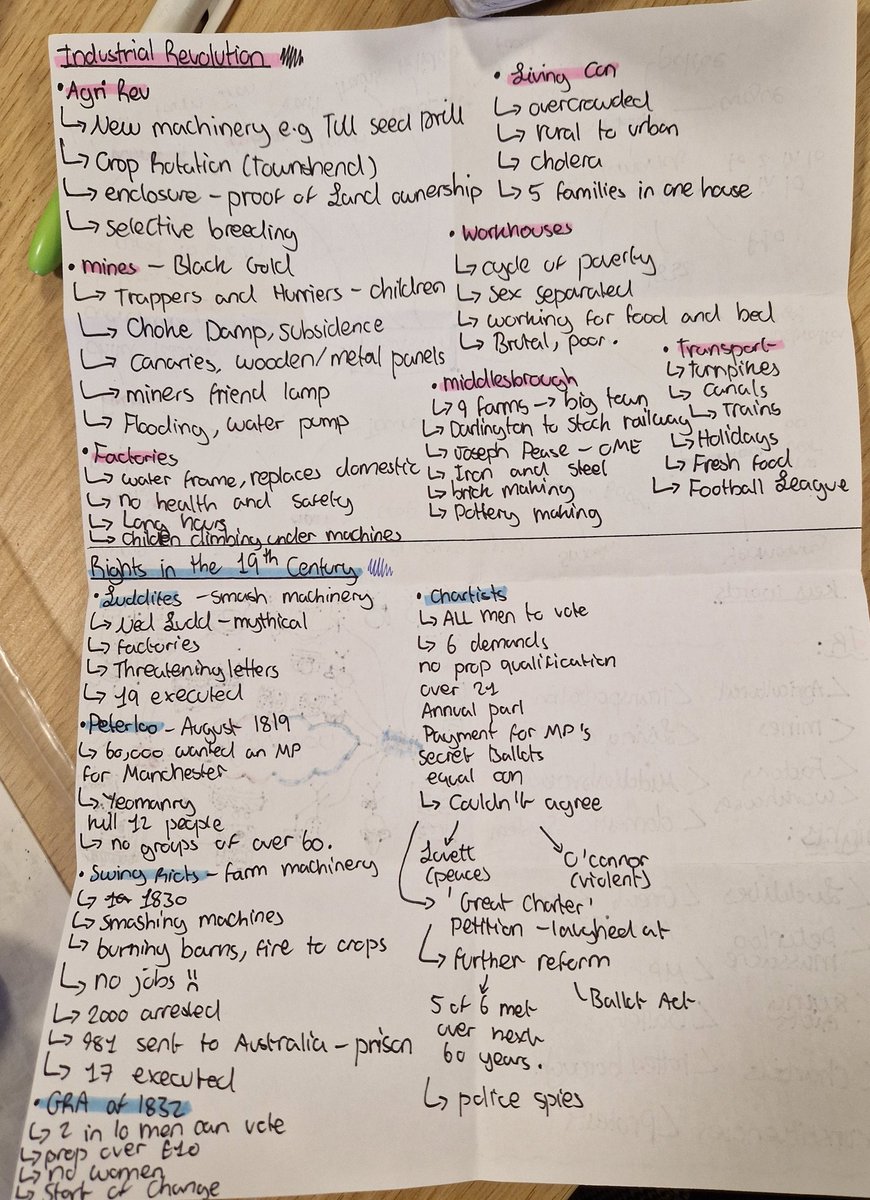 Industrial Revolution
• Agri Rev
↳ New machinery e.g Tull seed Drill
↳ Crop Rotation (Townshend)
↳ enclosure - proof of land ownership
↳ selective breeding
• mines - Black Gold
↳ Trappers and Hurriers - children
↳ Choke Damp, subsidence
↳ Canaries, wooden/metal panels
↳ miners friend lamp
↳ Flooding, water pump
• Factories
↳ water frame, replaces domestic
↳ no health and safety
↳ Long hours
↳ Children climbing under machines
• Living Con
↳ overcrowded
↳ rural to urban
↳ cholera
↳ 5 families in one house
• Workhouses
↳ cycle of poverty
↳ sex separated
↳ working for food and bed
↳ Brutal, poor.
• middlesbrough
↳ 9 farms → big town
↳ Darlington to Stock railway
↳ Joseph Pease - OME
↳ Iron and steel
↳ brick making
↳ Pottery making
• Transport
↳ turnpikes
↳ canals
↳ Trains
↳ Holidays
↳ Fresh food
↳ Football League
Rights in the 19th Century
• Luddites - smash machinery
↳ Ned Ludd - mythical
↳ factories
↳ Threatening letters
↳ 19 executed
• Peterloo - August 1819
↳ 60,000 wanted an MP
for Manchester
↳ Yeomanry
kill 12 people
↳ no groups of over 60.
• Swing Riots - farm machinery
↳ 1830
↳ smashing machines
↳ burning barns, fire to crops
↳ no jobs
↳ 2000 arrested
↳ 481 sent to Australia - prison
↳ 17 executed
• GRA of 1832
↳ 2 in 10 men can vote
↳ prop over £10
↳ no women
↳ Start of Change
• Chartists
↳ ALL men to vote
↳ 6 demands
no prop qualification
over 21
Annual parl
Payment for MP's
secret Ballots
equal con
↳ Couldn't agree
Lovett
(peace)
O'connor
(violent)
↳ 'Great Charter'
Petition - laughed at
↳ further reform
5 of 6 met
over next
60 years.
↳ Ballot Act
↳ police spies